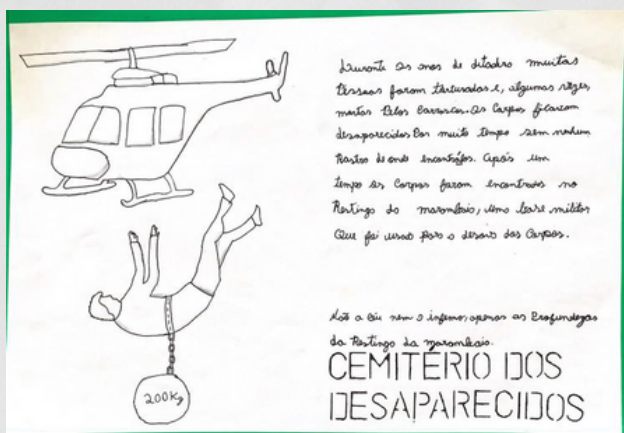 Durante os anos de ditadura muitas
Pessoas foram torturadas e, algumas vezes,
mortas Pelos Carrascos. Os Corpos ficaram
desaparecidos Por muito tempo sem nenhum
Rastro de onde encontrá-los. Após um
tempo os Corpos foram encontrados no
Restinga da marambaia, uma base militar
Que foi usada para o desova dos Corpos.
Não a Céu nem o inferno, apenas as Profundezas
da Restinga da marambaia.
CEMITÉRIO DOS
DESAPARECIDOS
200Kg